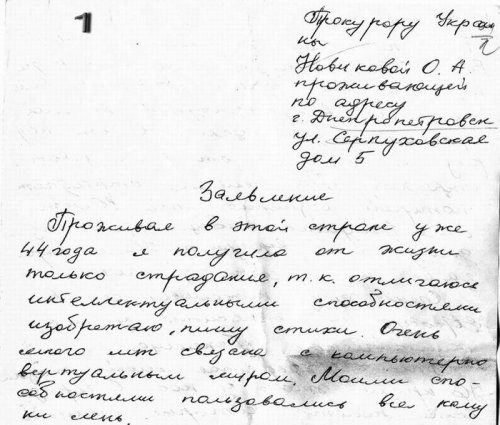 1
Прокурору Украи
ны
Новиковой О. А
проживающей
по адресу
г. Днепропетровск
ул. Серпуховская
дом 5
Заявление
Проживая в этой стране уже
44 года я получила от жизни
только страдание, т.к. отличаюсь
интеллектуальными способностями
изобретаю, пишу стихи. Очень
много лет связана с компьютерно
вертуальным миром. Моими спо-
собностями пользовались все кому
ни лень.